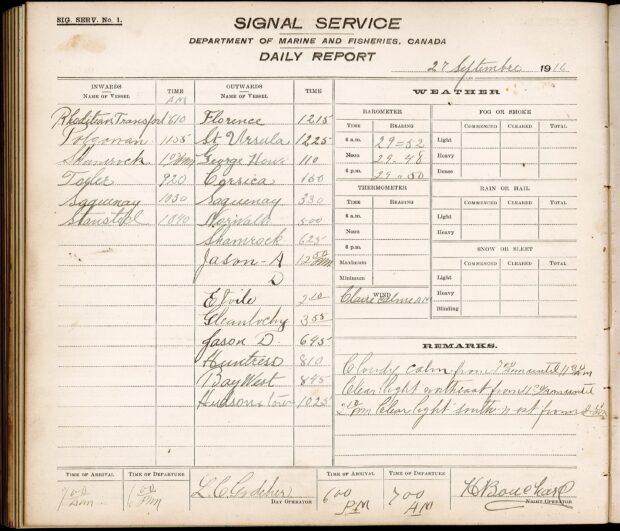 SIG. SERV. No. 1.
SIGNAL SERVICE
DEPARTMENT OF MARINE AND FISHERIES, CANADA
DAILY REPORT
27 September 1916
INWARDS
NAME OF VESSEL
TIME
AM
OUTWARDS
NAME OF VESSEL
TIME
WEATHER
Transport 610 Florence 1215
1155 St Ursula 1225
Shamrock George Howe 110
920 Corsica 160
Saguenay 1030 Saguenay 330
Norwalk 500
Shamrock 625
Jason - A
D
Etoile 2 10
3 55
Jason D. 645
Huntress 810
Bay West 845
1025
BAROMETER
TIME READING
6 a.m. 29=52
Noon 29=48
6 p.m. 29=50
THERMOMETER
TIME READING
6 a.m.
Noon
6 p.m.
Maximum
Minimum
WIND
FOG OR SMOKE
COMMENCED CLEARED TOTAL
Light
Heavy
Dense
RAIN OR HAIL
COMMENCED CLEARED TOTAL
Light
Heavy
SNOW OR SLEET
COMMENCED CLEARED TOTAL
Light
Heavy
Blinding
REMARKS.
Cloudy calm from until
Clear light from until
Clear light south from
TIME OF ARRIVAL
7 00
TIME OF DEPARTURE
6 00
PM
DAY OPERATOR
TIME OF ARRIVAL
6 00
PM
TIME OF DEPARTURE
7 00
AM
H Bouchard
NIGHT OPERATOR